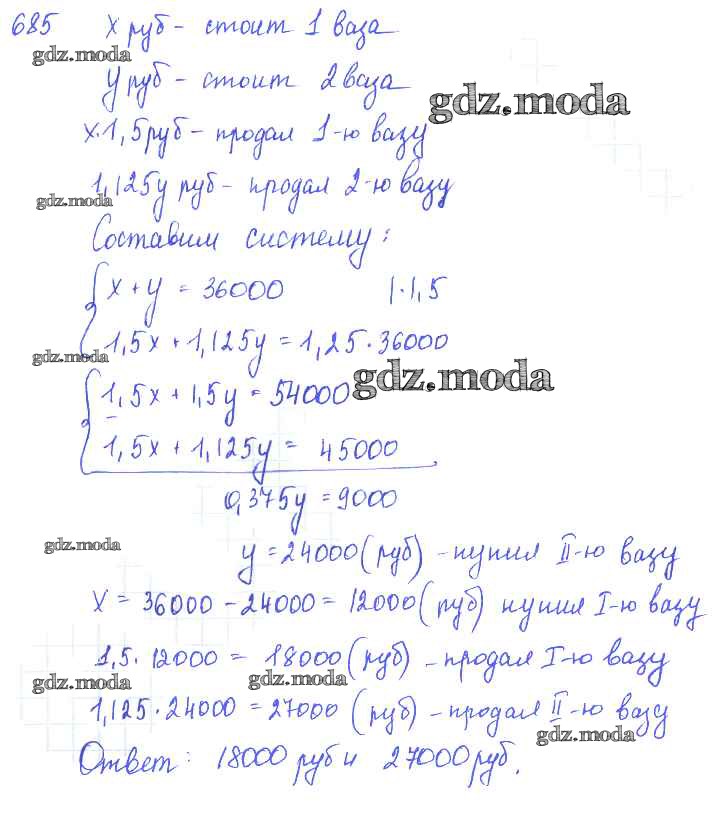 685 х руб - стоит 1 ваза
gdz.moda
у руб - стоит 2 ваза
gdz.moda
х·1,5 руб - продал 1-ю вазу
1,125у руб - продал 2-ю вазу
gdz.moda
Составим систему:
х + у = 36000 |·1,5
1,5х + 1,125у = 1,25·36000
gdz.moda
gdz.moda
1,5х + 1,5у = 54000
-
1,5х + 1,125у = 45000
0,375у = 9000
gdz.moda
у = 24000 (руб) - купил II-ю вазу
х = 36000 - 24000 = 12000 (руб) купил I-ю вазу
1,5·12000 = 18000 (руб) - продал I-ю вазу
gdz.moda
gdz.moda
1,125·24000 = 27000 (руб) - продал II-ю вазу
gdz.moda
Ответ: 18000 руб и 27000 руб.